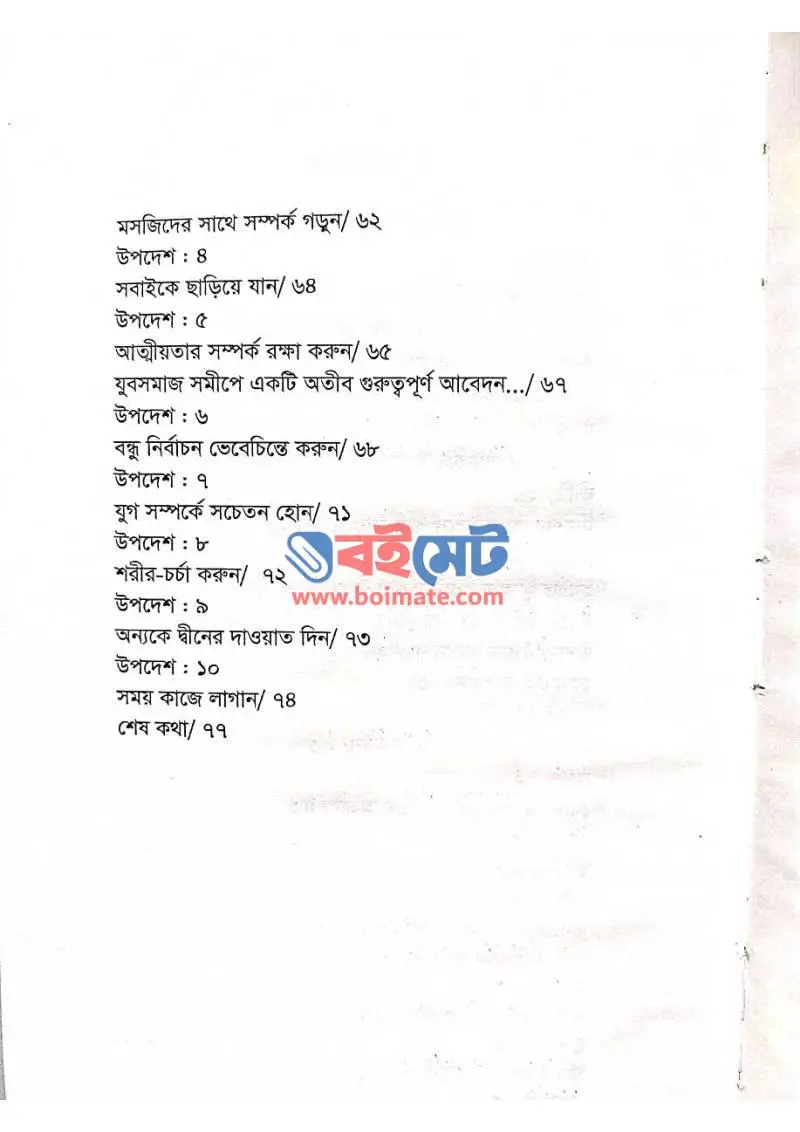 মসজিদের সাথে সম্পর্ক গড়ুন/ ৬২
উপদেশ : ৪
সবাইকে ছাড়িয়ে যান/ ৬৪
উপদেশ : ৫
আত্মীয়তার সম্পর্ক রক্ষা করুন/ ৬৫
যুবসমাজ সমীপে একটি অতীব গুরুত্বপূর্ণ আবেদন.../ ৬৭
উপদেশ : ৬
বন্ধু নির্বাচন ভেবেচিন্তে করুন/ ৬৮
উপদেশ : ৭
যুগ সম্পর্কে সচেতন হোন/ ৭১
উপদেশ : ৮
বইমেট
শরীর-চর্চা করুন/ ৭২
www.boimate.com
উপদেশ : ৯
অন্যকে দ্বীনের দাওয়াত দিন/ ৭৩
উপদেশ : ১০
সময় কাজে লাগান/ ৭৪
শেষ কথা/ ৭৭